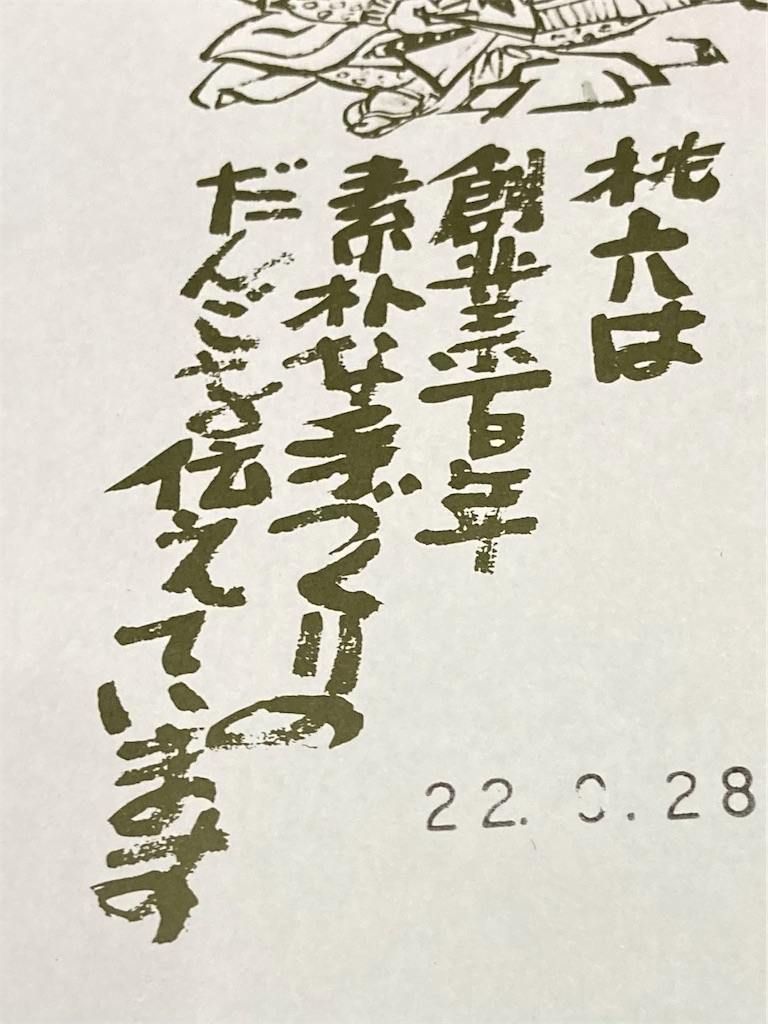 桃六は
創業百年
素朴な手づくりの
だんごを伝えています
22. .28